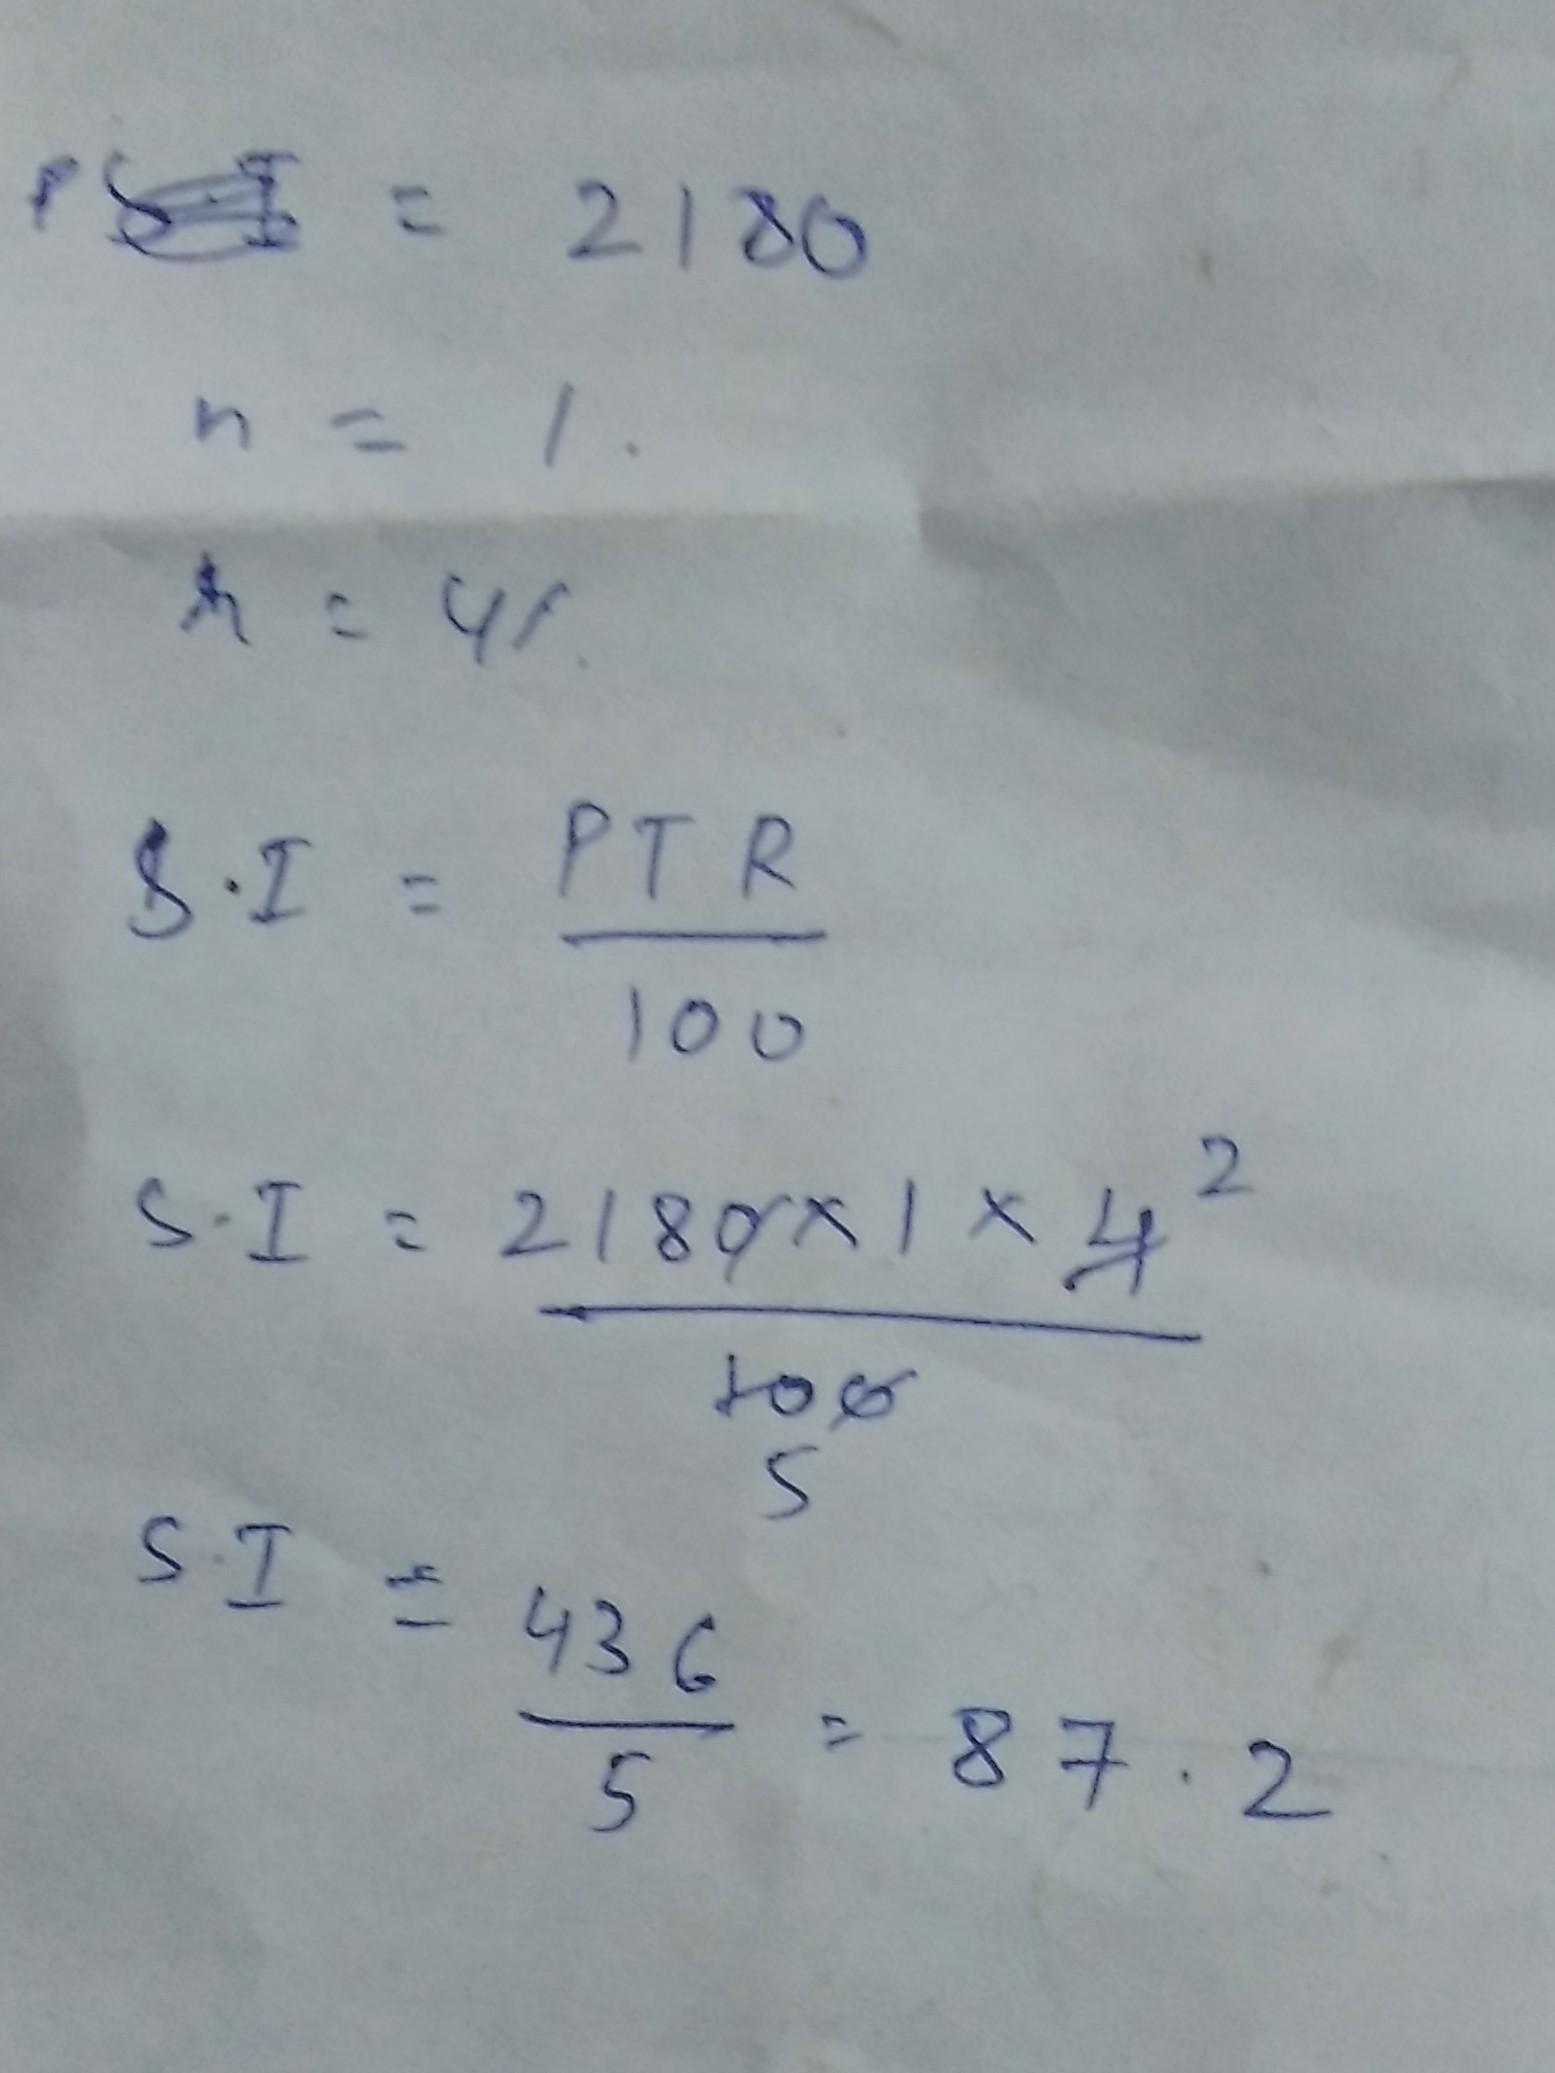 P = 2180
n = 1.
r = 4%.
S.I = PTR
100
S.I = 2180 x 1 x 4 2
100
5
S.I = 436
5
= 87.2